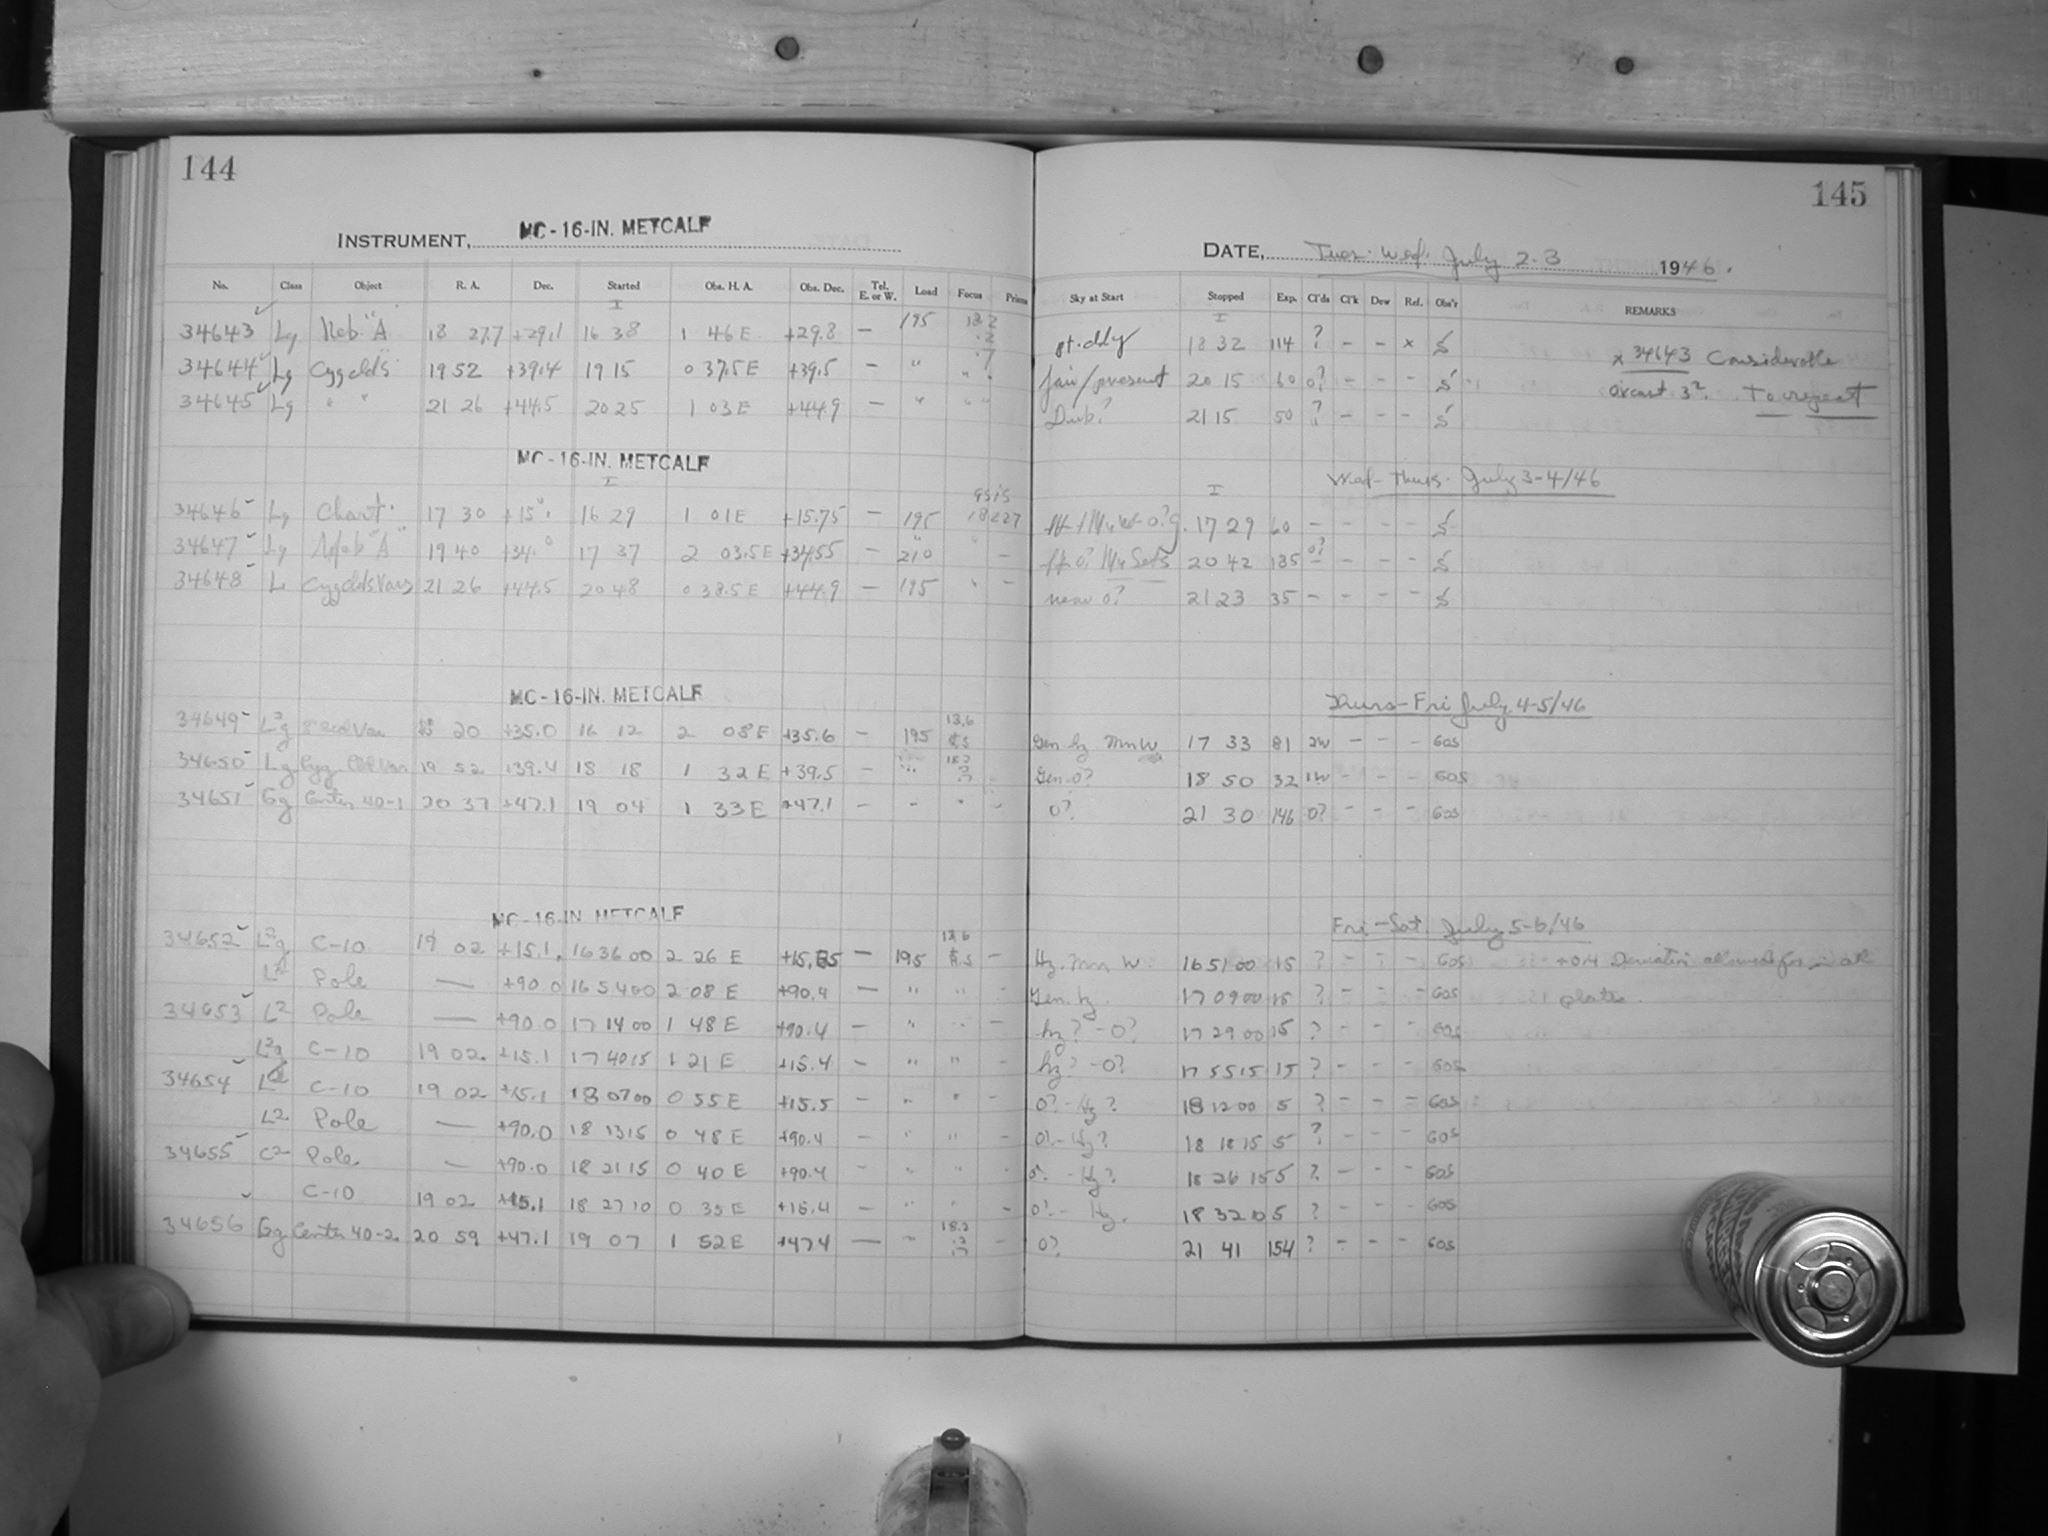 144
145
INSTRUMENT, MC-16-IN. METCALF
DATE, Tues-Wed. July 2-3 1946.
No. Class Object R. A. Dec. Started Obs. H. A. Obs. Dec. Tel. E. or W. Load Focus Prisms Sky at Start Stopped Exp. Cl'ds Cl'k Dew Ref. Obs'r REMARKS
34643 Lg Neb "A" 18 27.7 +29.1 16 38 1 46 E +29.8 — 195 18.2 .2 .7 pt. cldy 18 32 114 ? - - x S x 34643 Considerable
34644 Lg 19 52 +39.4 19 15 0 37.5 E +39.5 — " " fair/present 20 15 60 0? - - - S To repeat
34645 Lg " " 21 26 +44.5 20 25 1 03 E +44.9 — " " " 21 15 50 ? - - - S
MC-16-IN. METCALF
Wed-Thurs. July 3-4/46
34646 Lg Chart. 17 30 +15 16 29 1 01 E +15.75 — 195 17 29 60 - - - - S
34647 Lg "A" 19 40 +34.0 17 37 2 03.5 E +34.55 — 210 " - 20 42 185 0? - - - S
34648 L 21 26 +44.5 20 48 0 38.5 E +44.9 — 195 " - near 0? 21 23 35 - - - - S
MC-16-IN. METCALF
Thurs-Fri July 4-5/46
34649 L²g 20 +35.0 16 12 2 08 E +35.6 — 195 13.6 Gen hz Mn W 17 33 81 2W - - - GOS
34650 Lg Cyg 19 52 +39.4 18 18 1 32 E +39.5 — Gen. 0? 18 50 32 1W - - - GOS
34651 Gg Center 40-1 20 37 +47.1 19 04 1 33 E +47.1 — - " - 0? 21 30 146 0? - - - GOS
MC-16-IN. METCALF
Fri-Sat. July 5-6/46
34652 L²g C-10 19 02 +15.1 16 36 00 2 26 E +15.35 — 195 13.6 - Hz. Mn W. 16 51 00 15 ? - - - GOS +0.4 Deviation allowed for in all
L² Pole — +90.0 16 54 00 2 08 E +90.4 — " " - Gen. hz. 17 09 00 15 ? - - - GOS plates.
34653 L² Pole — +90.0 17 14 00 1 48 E +90.4 — " " - hz? - 0? 17 29 00 15 ? - - - GOS
L²g C-10 19 02 +15.1 17 40 15 1 21 E +15.4 — " " - hz? - 0? 17 55 15 15 ? - - - GOS
34654 L² C-10 19 02 +15.1 18 07 00 0 55 E +15.5 — " " - 0? - Hz? 18 12 00 5 ? - - - GOS
L² Pole — +90.0 18 13 15 0 48 E +90.4 — " " - 0? - Hz? 18 18 15 5 ? - - - GOS
34655 C² Pole — +90.0 18 21 15 0 40 E +90.4 — " " - 0? - Hz? 18 26 15 5 ? - - - GOS
C-10 19 02 +15.1 18 27 10 0 35 E +15.4 — " " - 0? - Hz. 18 32 10 5 ? - - - GOS
34656 Gg Center 40-2 20 59 +47.1 19 07 1 52 E +47.4 — " 18.2 .2 .7 - 0? 21 41 154 ? - - - GOS